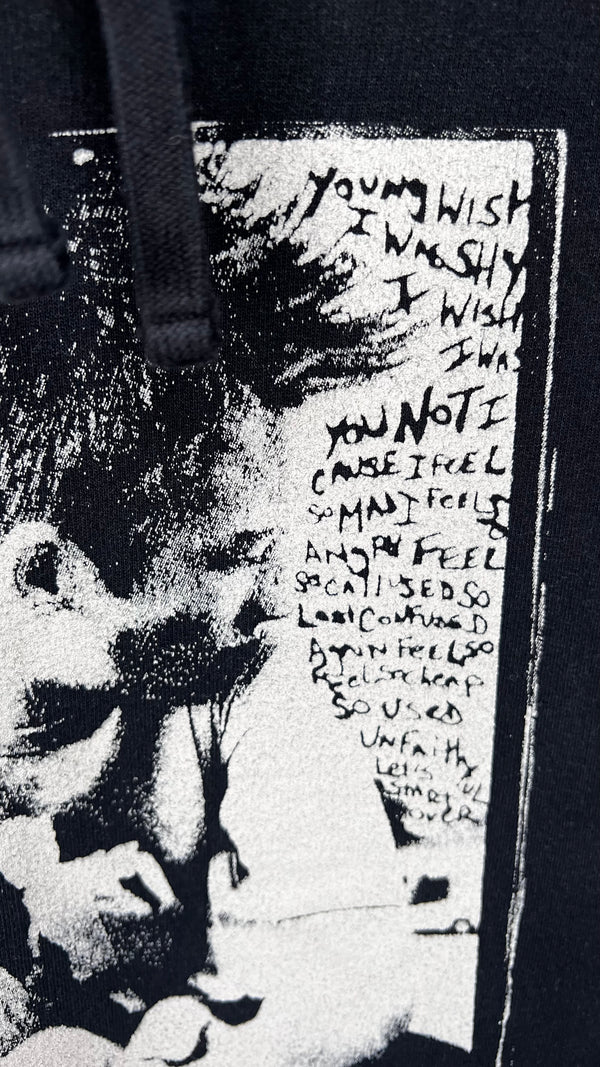 YOUNG WISH
I WAS SHY
I WISH
I WAS
YOU NOT I
CAUSE I FEEL
SO MAD I FEEL SO
ANGRY FEEL
SO CALLUSED SO
LOST CONFUSED
AGAIN FEEL SO
Feel So cheap
SO USED
UNFAITHFUL
Let's
START
OVER